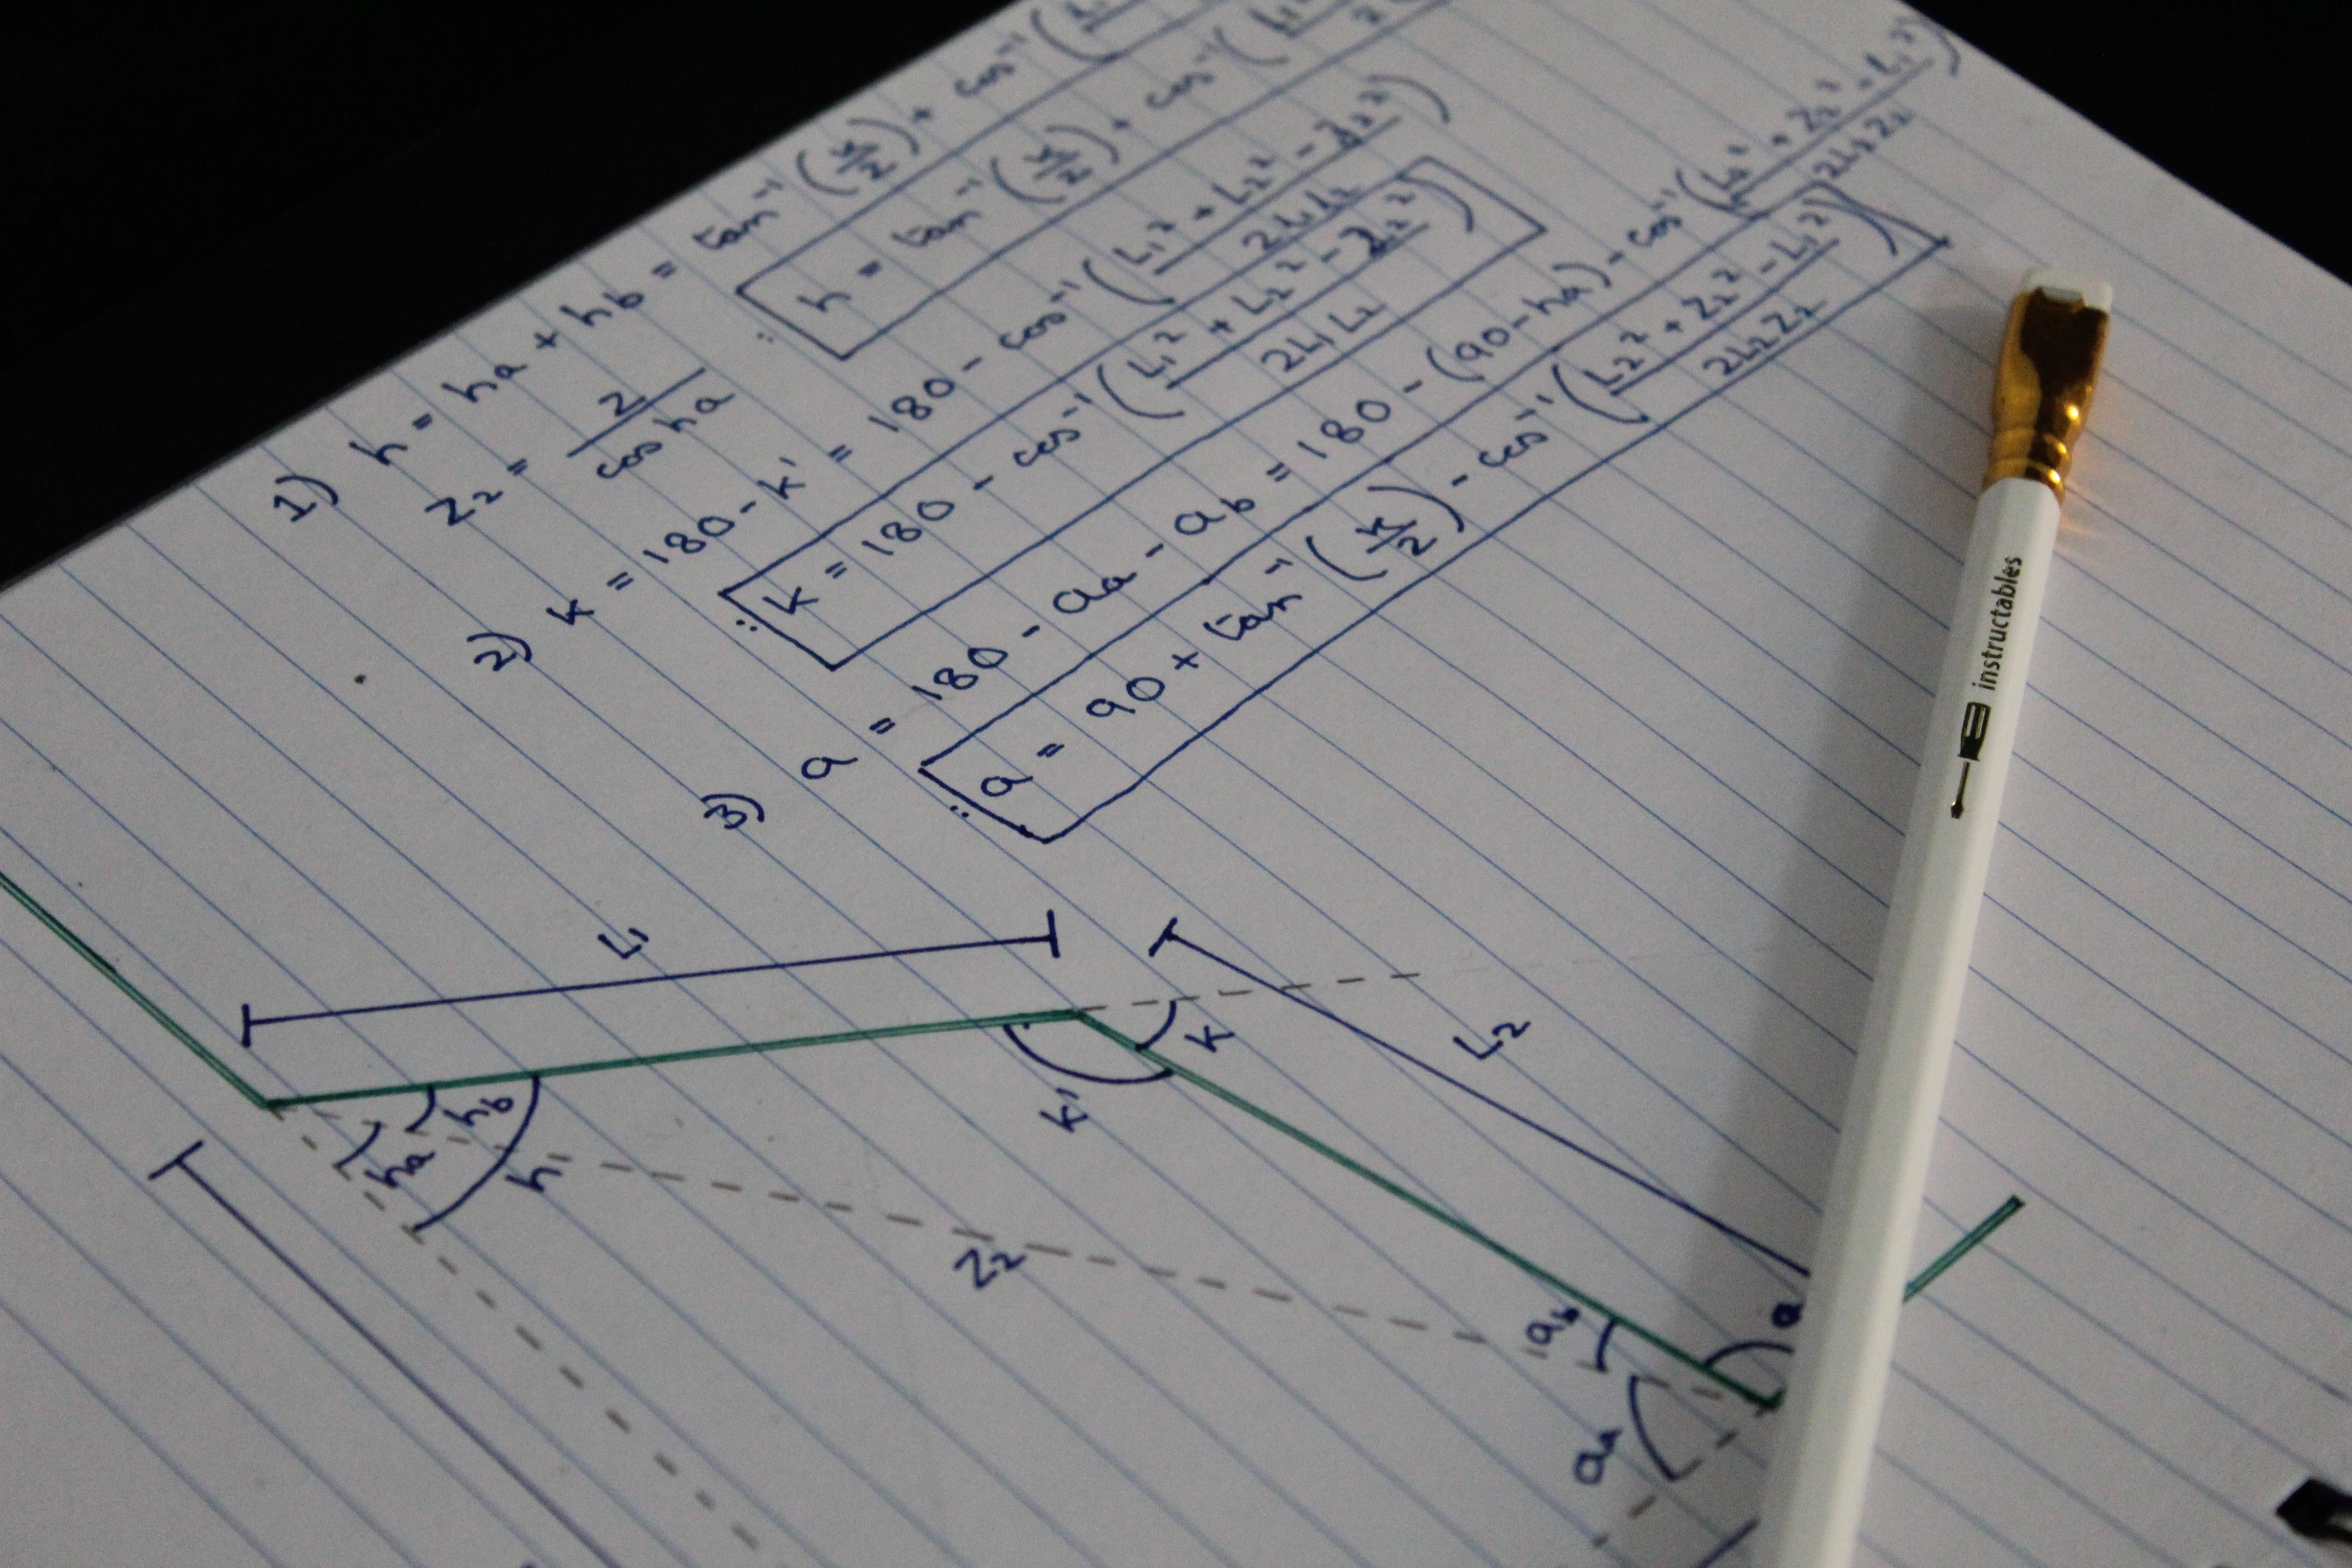 1) h = ha + hb = tan⁻¹(x/z) + cos⁻¹(
Z₂ = z / cos ha
∴ h = tan⁻¹(x/z) + cos⁻¹(
2) K = 180 - K' = 180 - cos⁻¹((L₁² + L₂² - Z₂²) / 2L₁L₂)
∴ K = 180 - cos⁻¹((L₁² + L₂² - Z₂²) / 2L₁L₂)
3) a = 180 - aa - ab = 180 - (90 - ha) - cos⁻¹((L₂² + Z₂² - L₁²) / 2L₂Z₂)
∴ a = 90 + tan⁻¹(x/z) - cos⁻¹((L₂² + Z₂² - L₁²) / 2L₂Z₂)
L₁
L₂
K
K'
hb
ha
h
Z₂
ab
a
aa
instructables